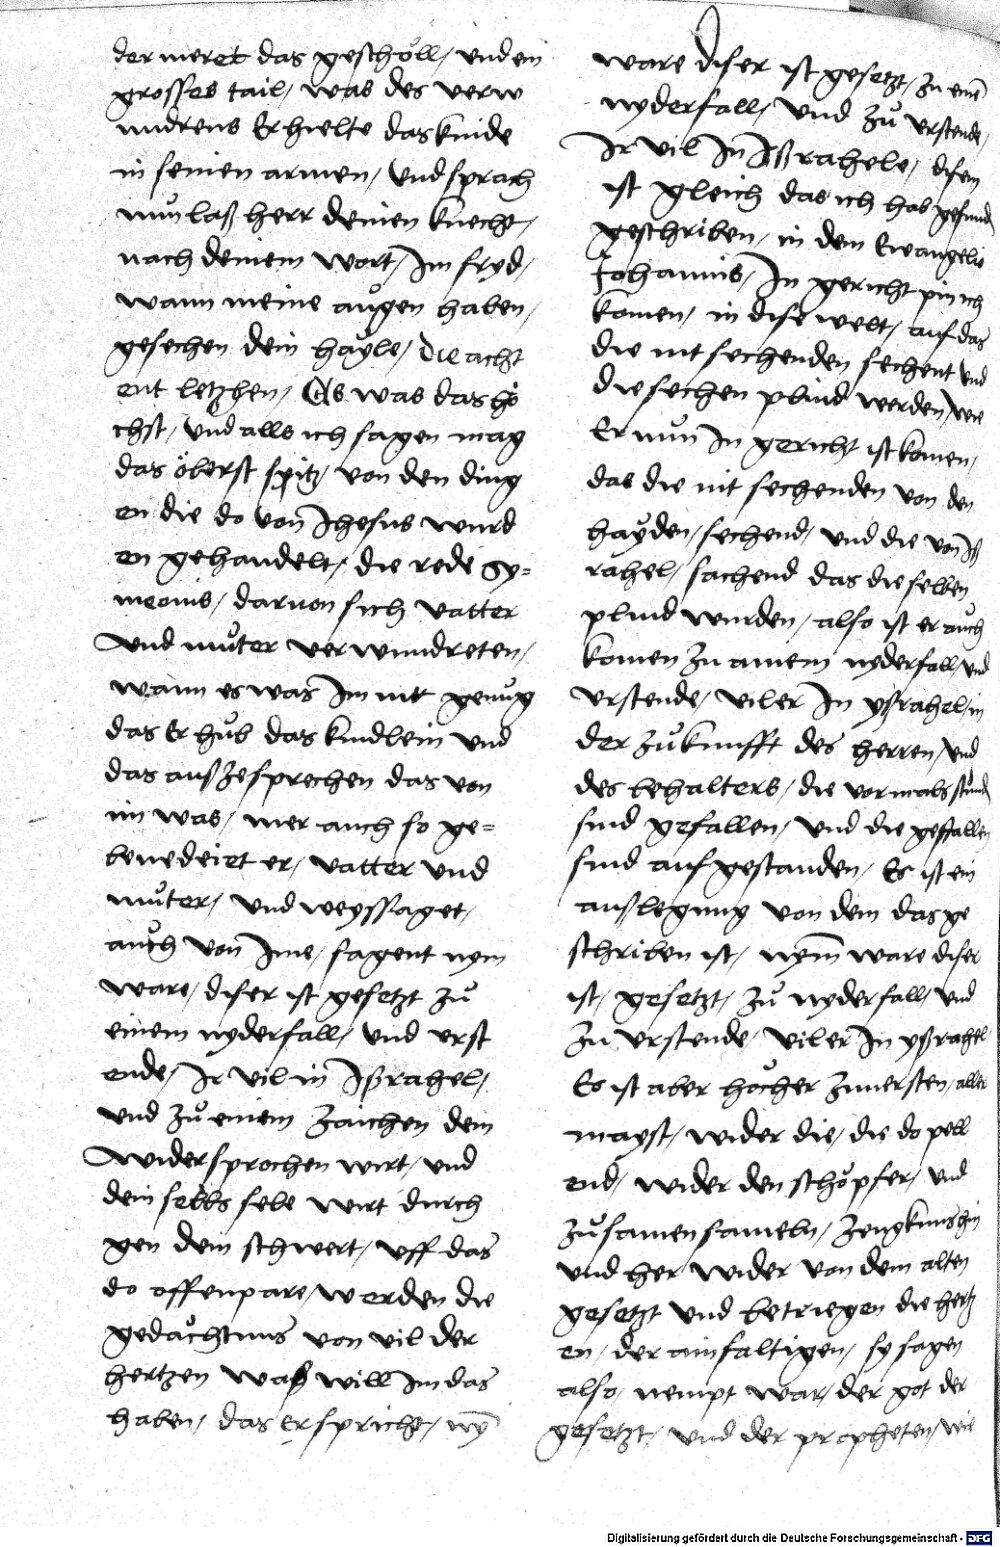 der meret das geschöll / vnd ein
grosses tail / was des verw
undrens Er hielte das kinde
in seinen armen / Vnd sprach
nŭn laß herr deinen knecht /
nach deinem wort / Im fryd /
wann meine augen haben /
gesechen dein hayle / Die acht
ent letzhen / Es was das hö
chst / Vnd alls ich sagen mag
das öberst spitz / von den ding
en die do von Ihesus wurd
en gehandelt / die rede Sy=
meonis / daruon sich vatter
Vnd mŭter verwundreten /
wann es was Im nit genŭg
das Er hŭb das kindlein Vnd
das außzesprechen das von
im was / mer auch so ge=
benedeiet er / vatter Vnd
mŭter / Vnd weyssaget /
auch von Ime / sagent nym
ware / diser ist gesetzt zŭ
einem nyderfall / Vnd vrst
ende / Ir vil in Ißrahel /
Vnd zŭ einem zaichen dem
Widersprochen wirt / Vnd
dein selbs sele wirt durch
gen dem schwert / Vff das
do offenpare / werden die
gedächtnus von vil der
hertzen Was will Im das
haben / das er spricht / nÿ
ware diser ist gesetzt / zu einē
nyderfall / Vnd zŭ vrstende /
Ir vil In Ißrahele / disem
ist gleich das ich hab gefund
geschriben / in dem Ewangelii
Johannis / In gericht pin ich
komen / in dise welt / auf das
die nit sechenden sechent Vnd
die sechen plind werden / wie
Er nŭn In gericht ist komen /
das die nit sechenden von den
hayden / sechend / Vnd die von Iß
rahel / sachend das die selben
plind wurden / also ist er auch
komen zu ainem nyderfall / Vnd
Vrstende / viler In yßrahel / in
der zŭkunfft des herren / Vnd
des behalters / die vormals stŭnd
sind gefallen / Vnd die gefallen
sind auf gestanden / Es ist ein
auslegung von dem das ge
schriben ist / nym̄ ware diser
ist / gesetzt / zŭ nyderfall / Vnd
zu Vrstende / viler In yßrahel
Es ist aber höcher zuuersten / aller
mayst / wider die / die do pell
end / wider den schöpfer / Vnd
zŭsamen sameln / zeugknus hin
Vnd her wider von dem alten
gesetzt Vnd betriegen die hertz
en / der ainfaltigen / sy sagen
also / nempt war / der got der
gesetzt / Vnd der propheten / wie
Digitalisierung gefördert durch die Deutsche Forschungsgemeinschaft - DFG